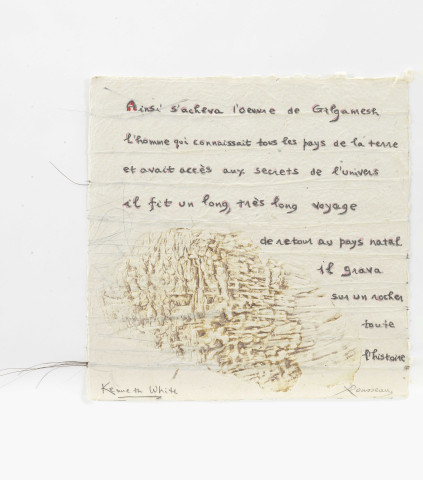 Ainsi s'acheva l'oeuvre de Gilgamesh
l'homme qui connaissait tous les pays de la terre
et avait accès aux secrets de l'univers
il fit un long, très long voyage
de retour au pays natal
il grava
sur un rocher
toute
l'histoire
Kenneth White